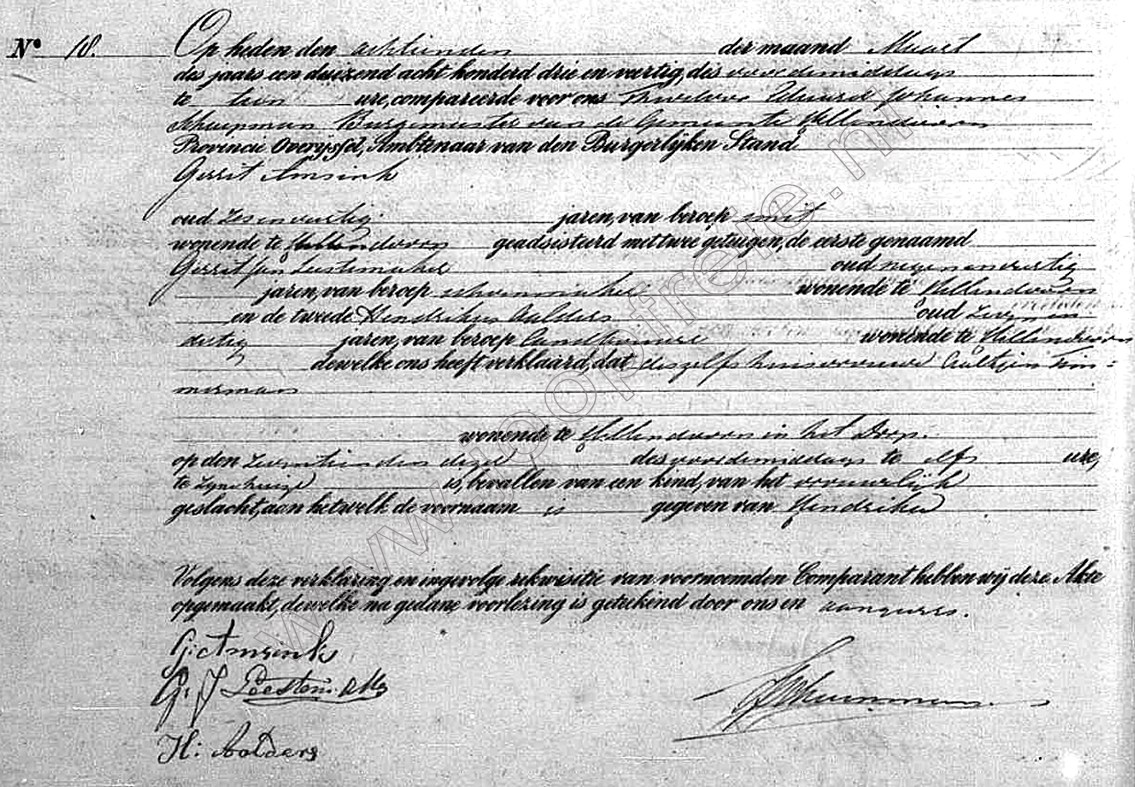 No. 18. Op heden den achtienden der maand Maart
des jaars een duizend acht honderd drie en veertig, des voordemiddags
te tien ure, compareerde voor ons Theodoor Eduard Johannes
Schuurman Burgemeester van de Gemeente Hellendoorn
Provincie Overijssel, Ambtenaar van den Burgerlijken Stand
Gerrit Amsink
oud zesenveertig jaren, van beroep smit
wonende te Hellendoorn geadsisteerd met twee getuigen, de eerste genaamd
Gerrit Jan Leestemaker oud negenenveertig
jaren, van beroep schoenmaker wonende te Hellendoorn
en de tweede Hendrikus Aalders oud zevenen
dertig jaren, van beroep landbouwer wonende te Hellendoorn
dewelke ons heeft verklaard, dat deszelfs huisvrouwe Aaltjen Tim=
merman
wonende te Hellendoorn in het Dorp.
op den zeventienden dezer des voordemiddags te elf ure,
te zynehuize is, bevallen van een kind, van het vrouwelijk
geslacht, aan hetwelk de voornaam is gegeven van Hendrika
Volgens deze verklaring en ingevolge rekwisitie van voornoemden Comparant hebben wij deze Akte
opgemaakt, dewelke na gedane voorlezing is geteekend door ons en aangevers.
G: Amsink
G. J Leestema
Schuurman
H: Aolders
www.opfreile.nl